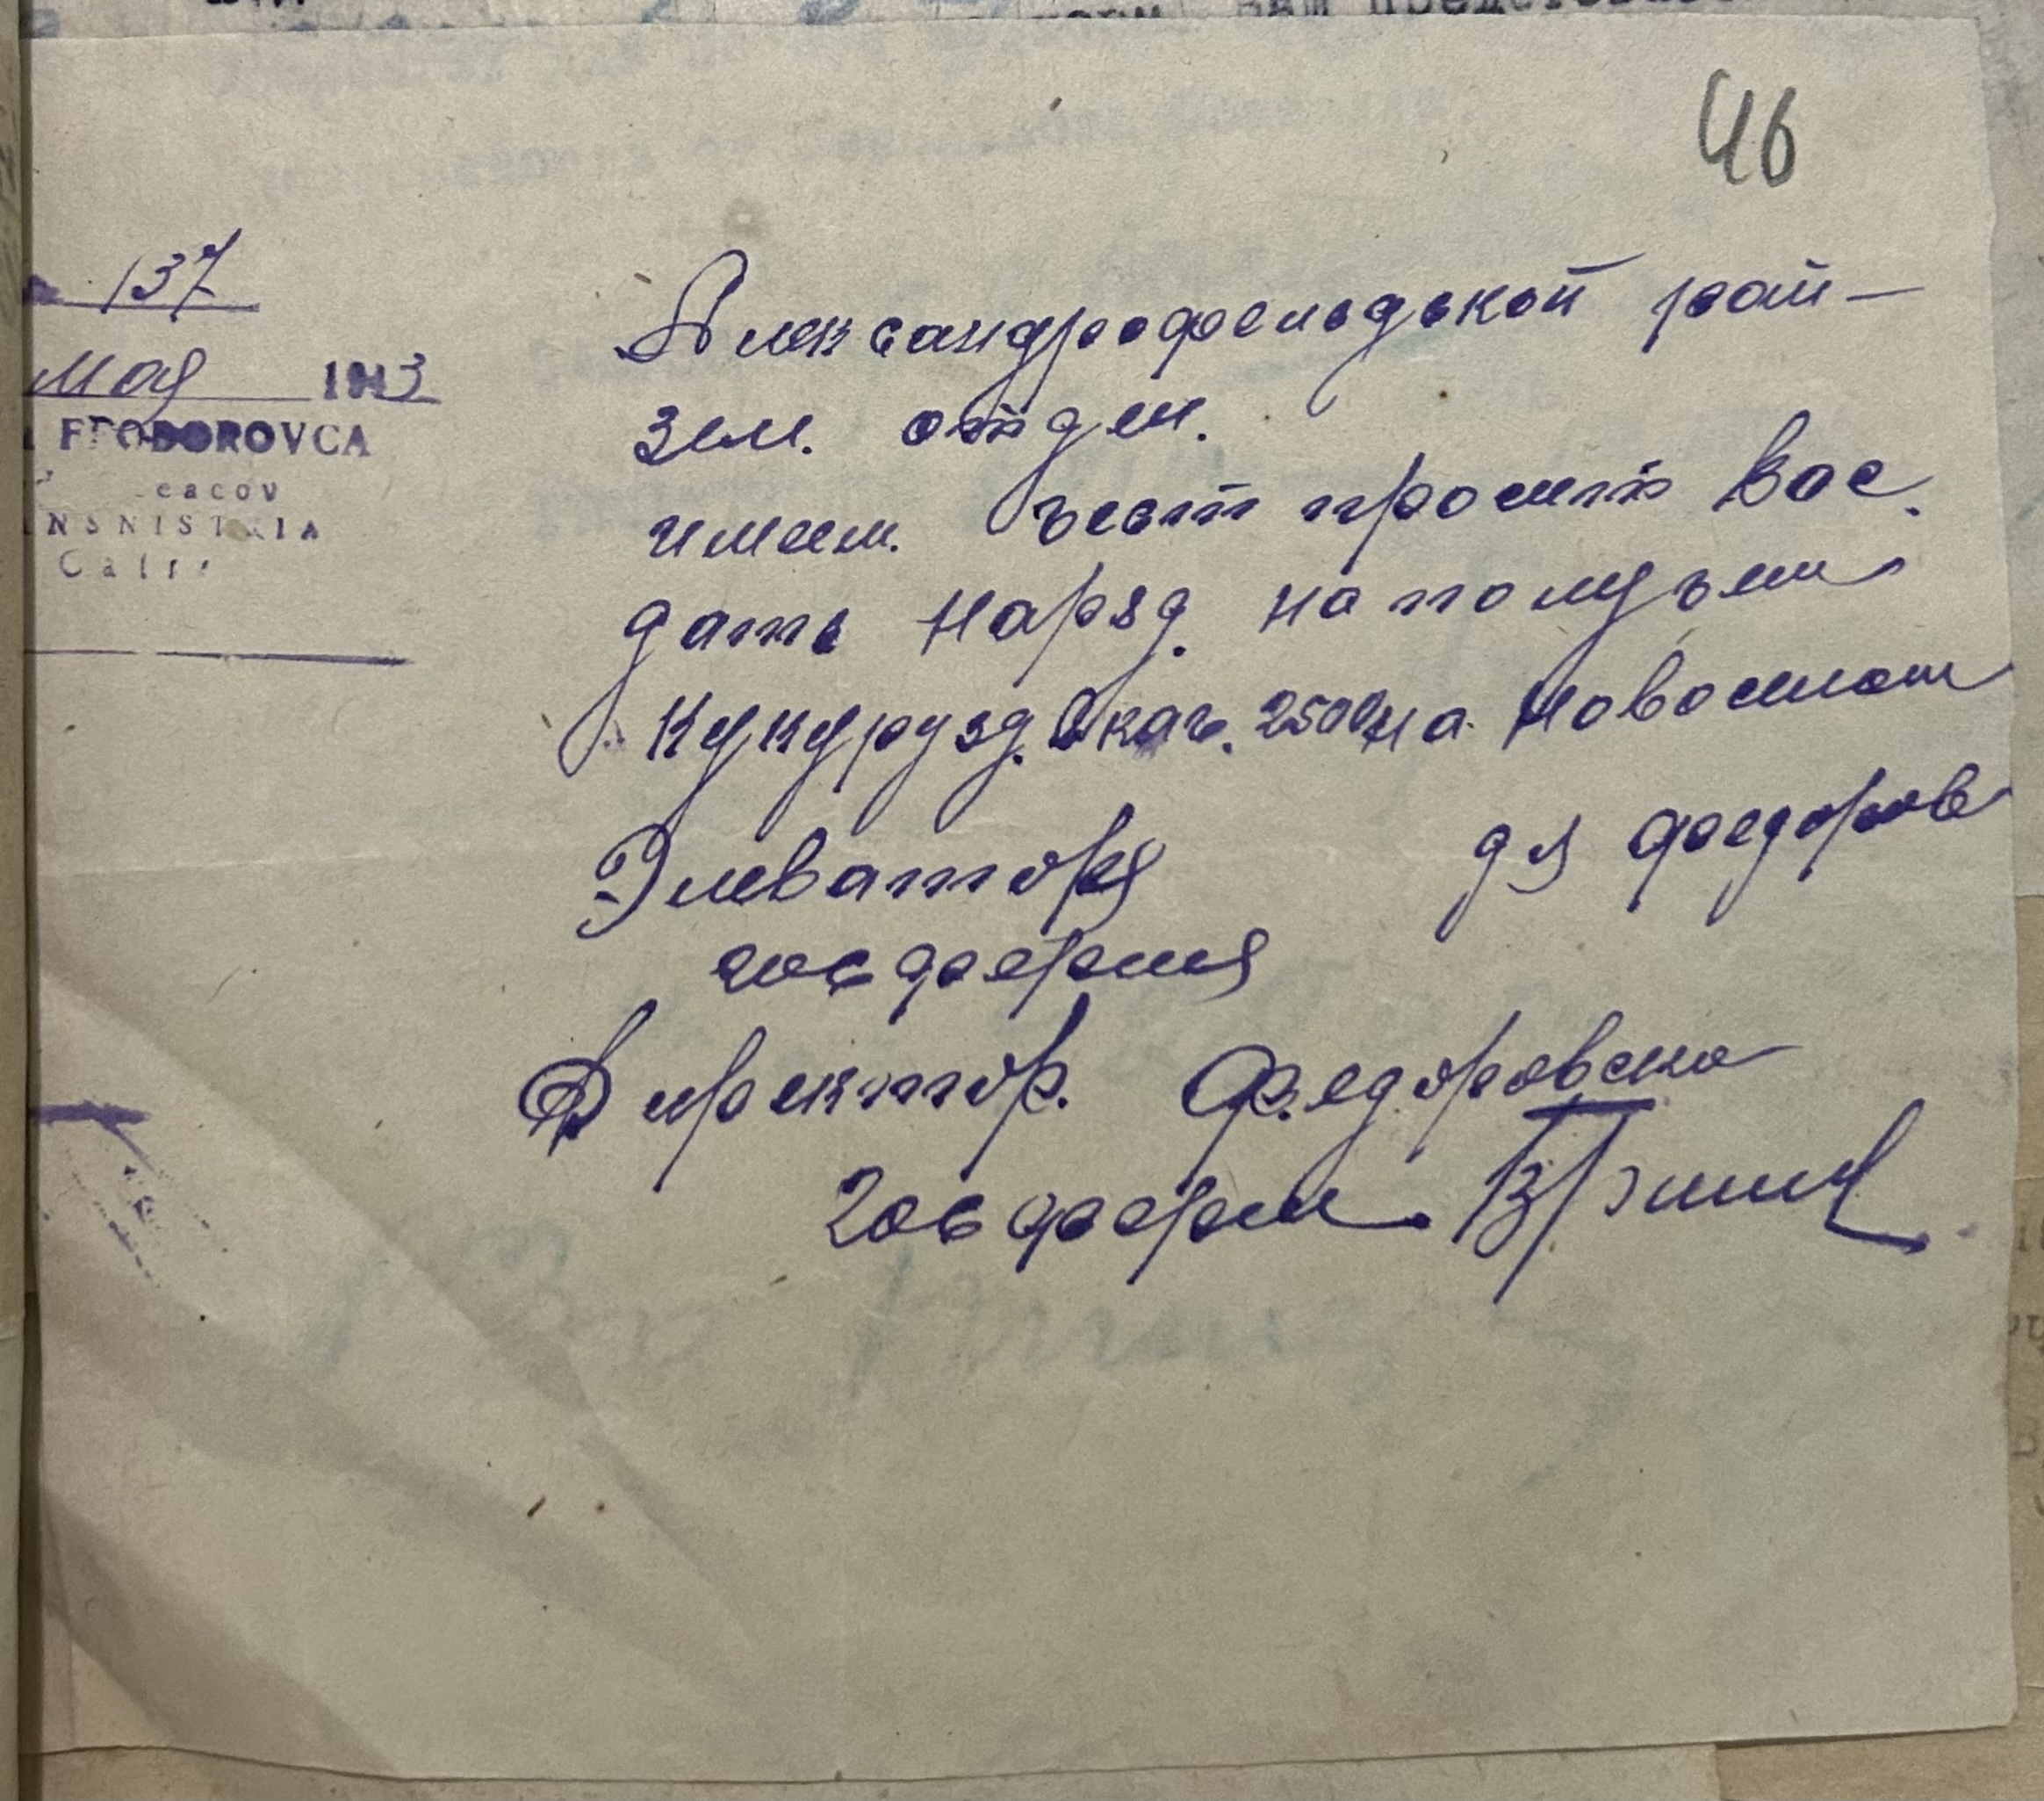 46
137
мая 1943
FEODOROVCA
NSNISTRIA
Александрофельдской рай-
зем. отдел.
имеем. чест просит Вас.
дать Наряд. на получен
Кукурузд. 2500 на Новоселош
Элеваторя дя Федоров
госфермя
Директор. Федоровско
Госферм.